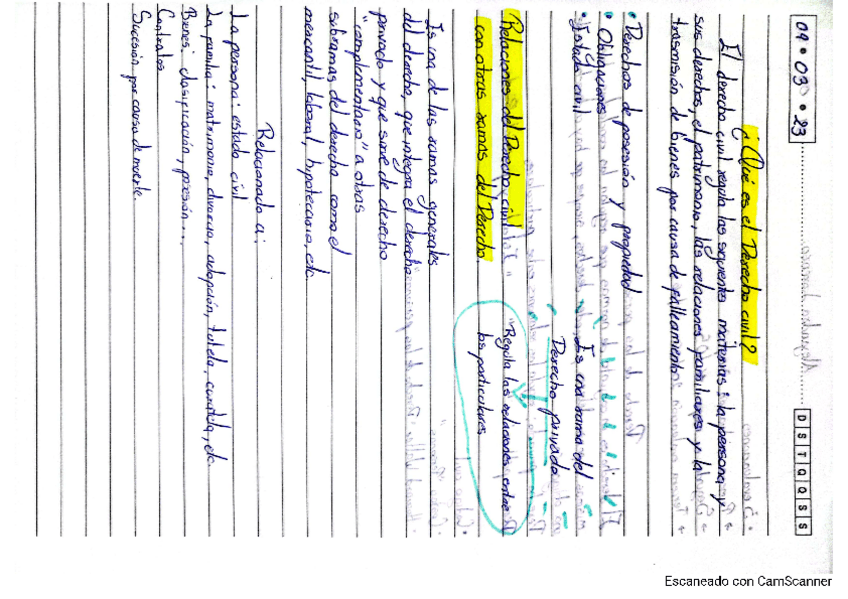 09 • 03 • 23
D S T Q Q S S
¿Qué es el Derecho civil?
El derecho civil regula las siguientes materias: la persona y
sus derechos, el patrimonio, las relaciones familiares y la
trasmisión de bienes por causa de fallecimiento
• Derechos de posesión y propiedad
• Obligaciones
• Estado civil
Es una rama del
Derecho privado
"Regula las relaciones entre
los particulares
Relaciones del Derecho civil
con otras ramas del Derecho
Es una de las ramas generales
del derecho, que integra el derecho
privado y que sirve de derecho
"complementario" a otras
subramas del derecho como el
mercantil, laboral, hipotecario, etc.
Relacionado a:
La persona: estado civil
La familia: matrimonio, divorcio, adopción, tutela, curatela, etc
Bienes: clasificación, posesión...
Contratos
Sucesión por causa de muerte.
Escaneado con CamScanner